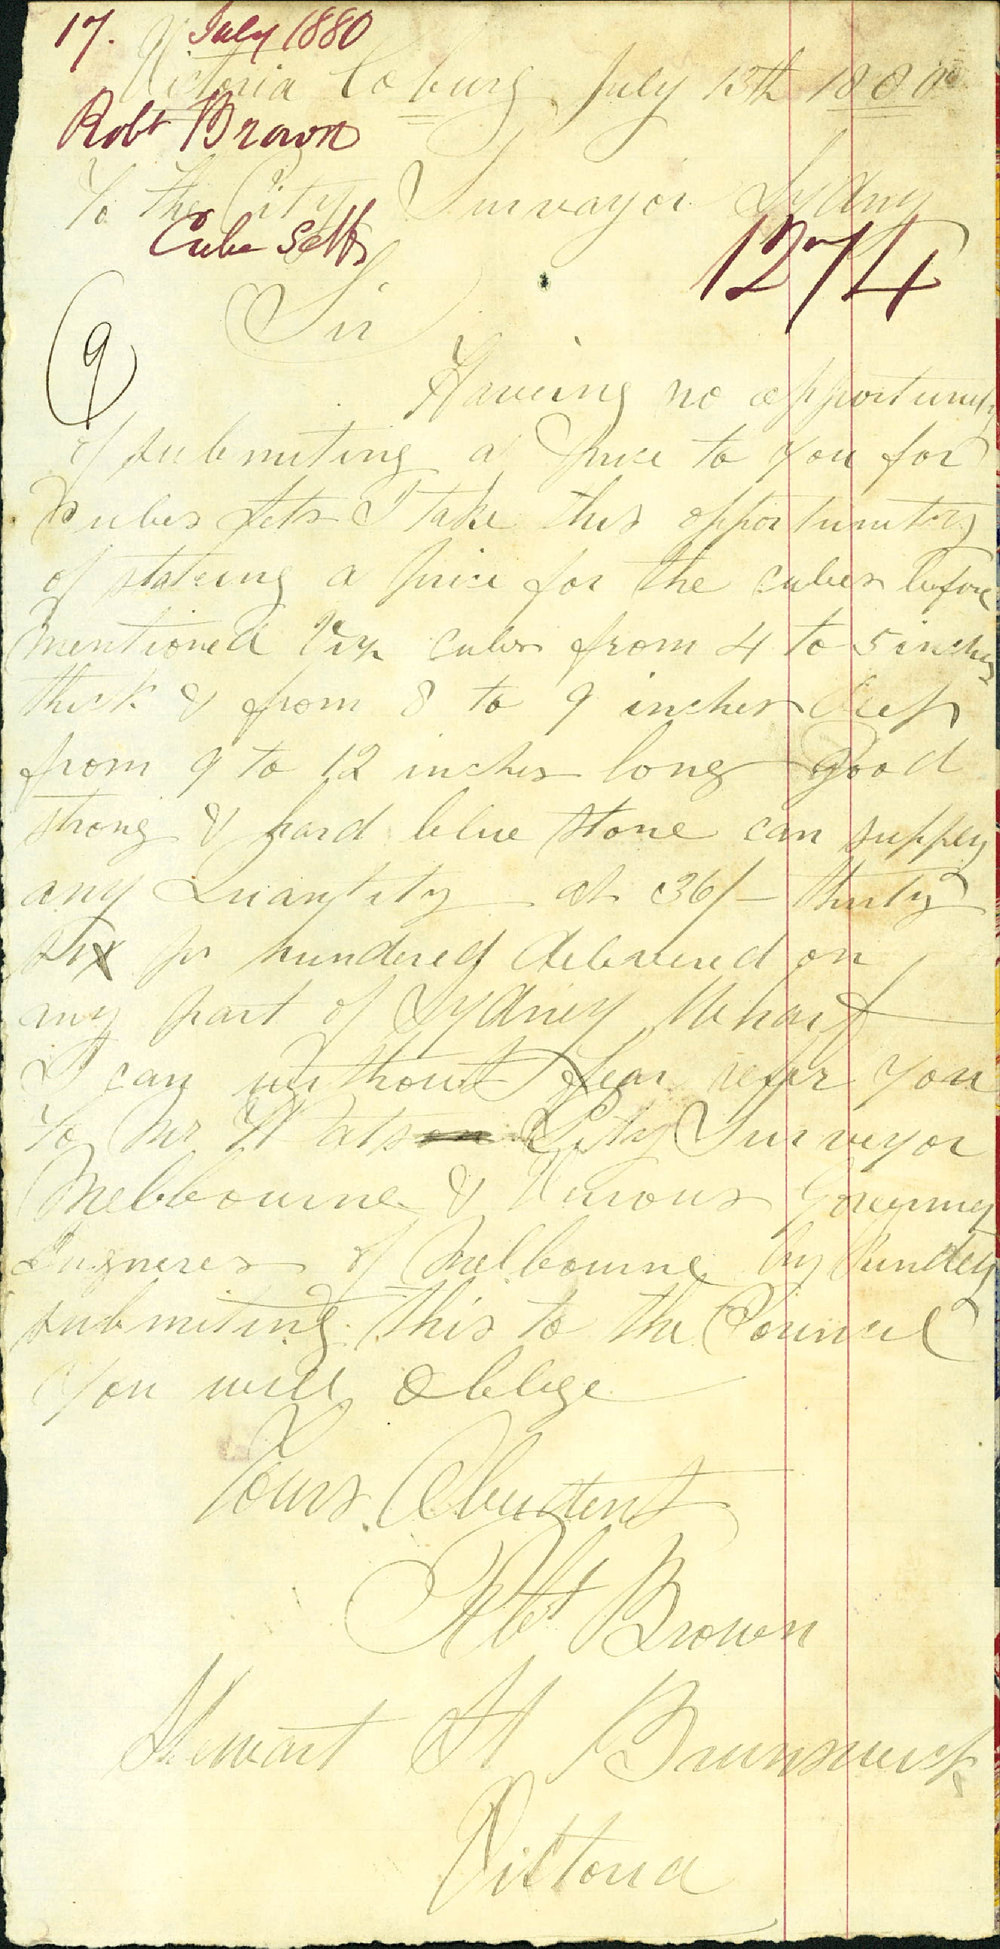 17. July 1880
Victoria Coburg July 13th 1880
Robt Brown
To the City Survayor Sydney
Cube Setts
1274
Sir
(9)
Haveing no opportunity
of submiting a price to you for
Cubes sets I take this opportunitey
of stateing a price for the cubes before
mentioned viz cubes from 4 to 5 inches
thick & from 8 to 9 inches deep
from 9 to 12 inches long good
strong & hard blue stone can supply
any Quantity at 36/- thirty
six pr hundered delavered on
any part of Sydney Wharf
I can without fear refer you
To Mr Watson City Surveyor
Melbourne & Varous
of Melbourne by kindley
submiting this to the Councel
you will oblege
Yours
Robt Brown
Stewart St Brunswick
Victoria